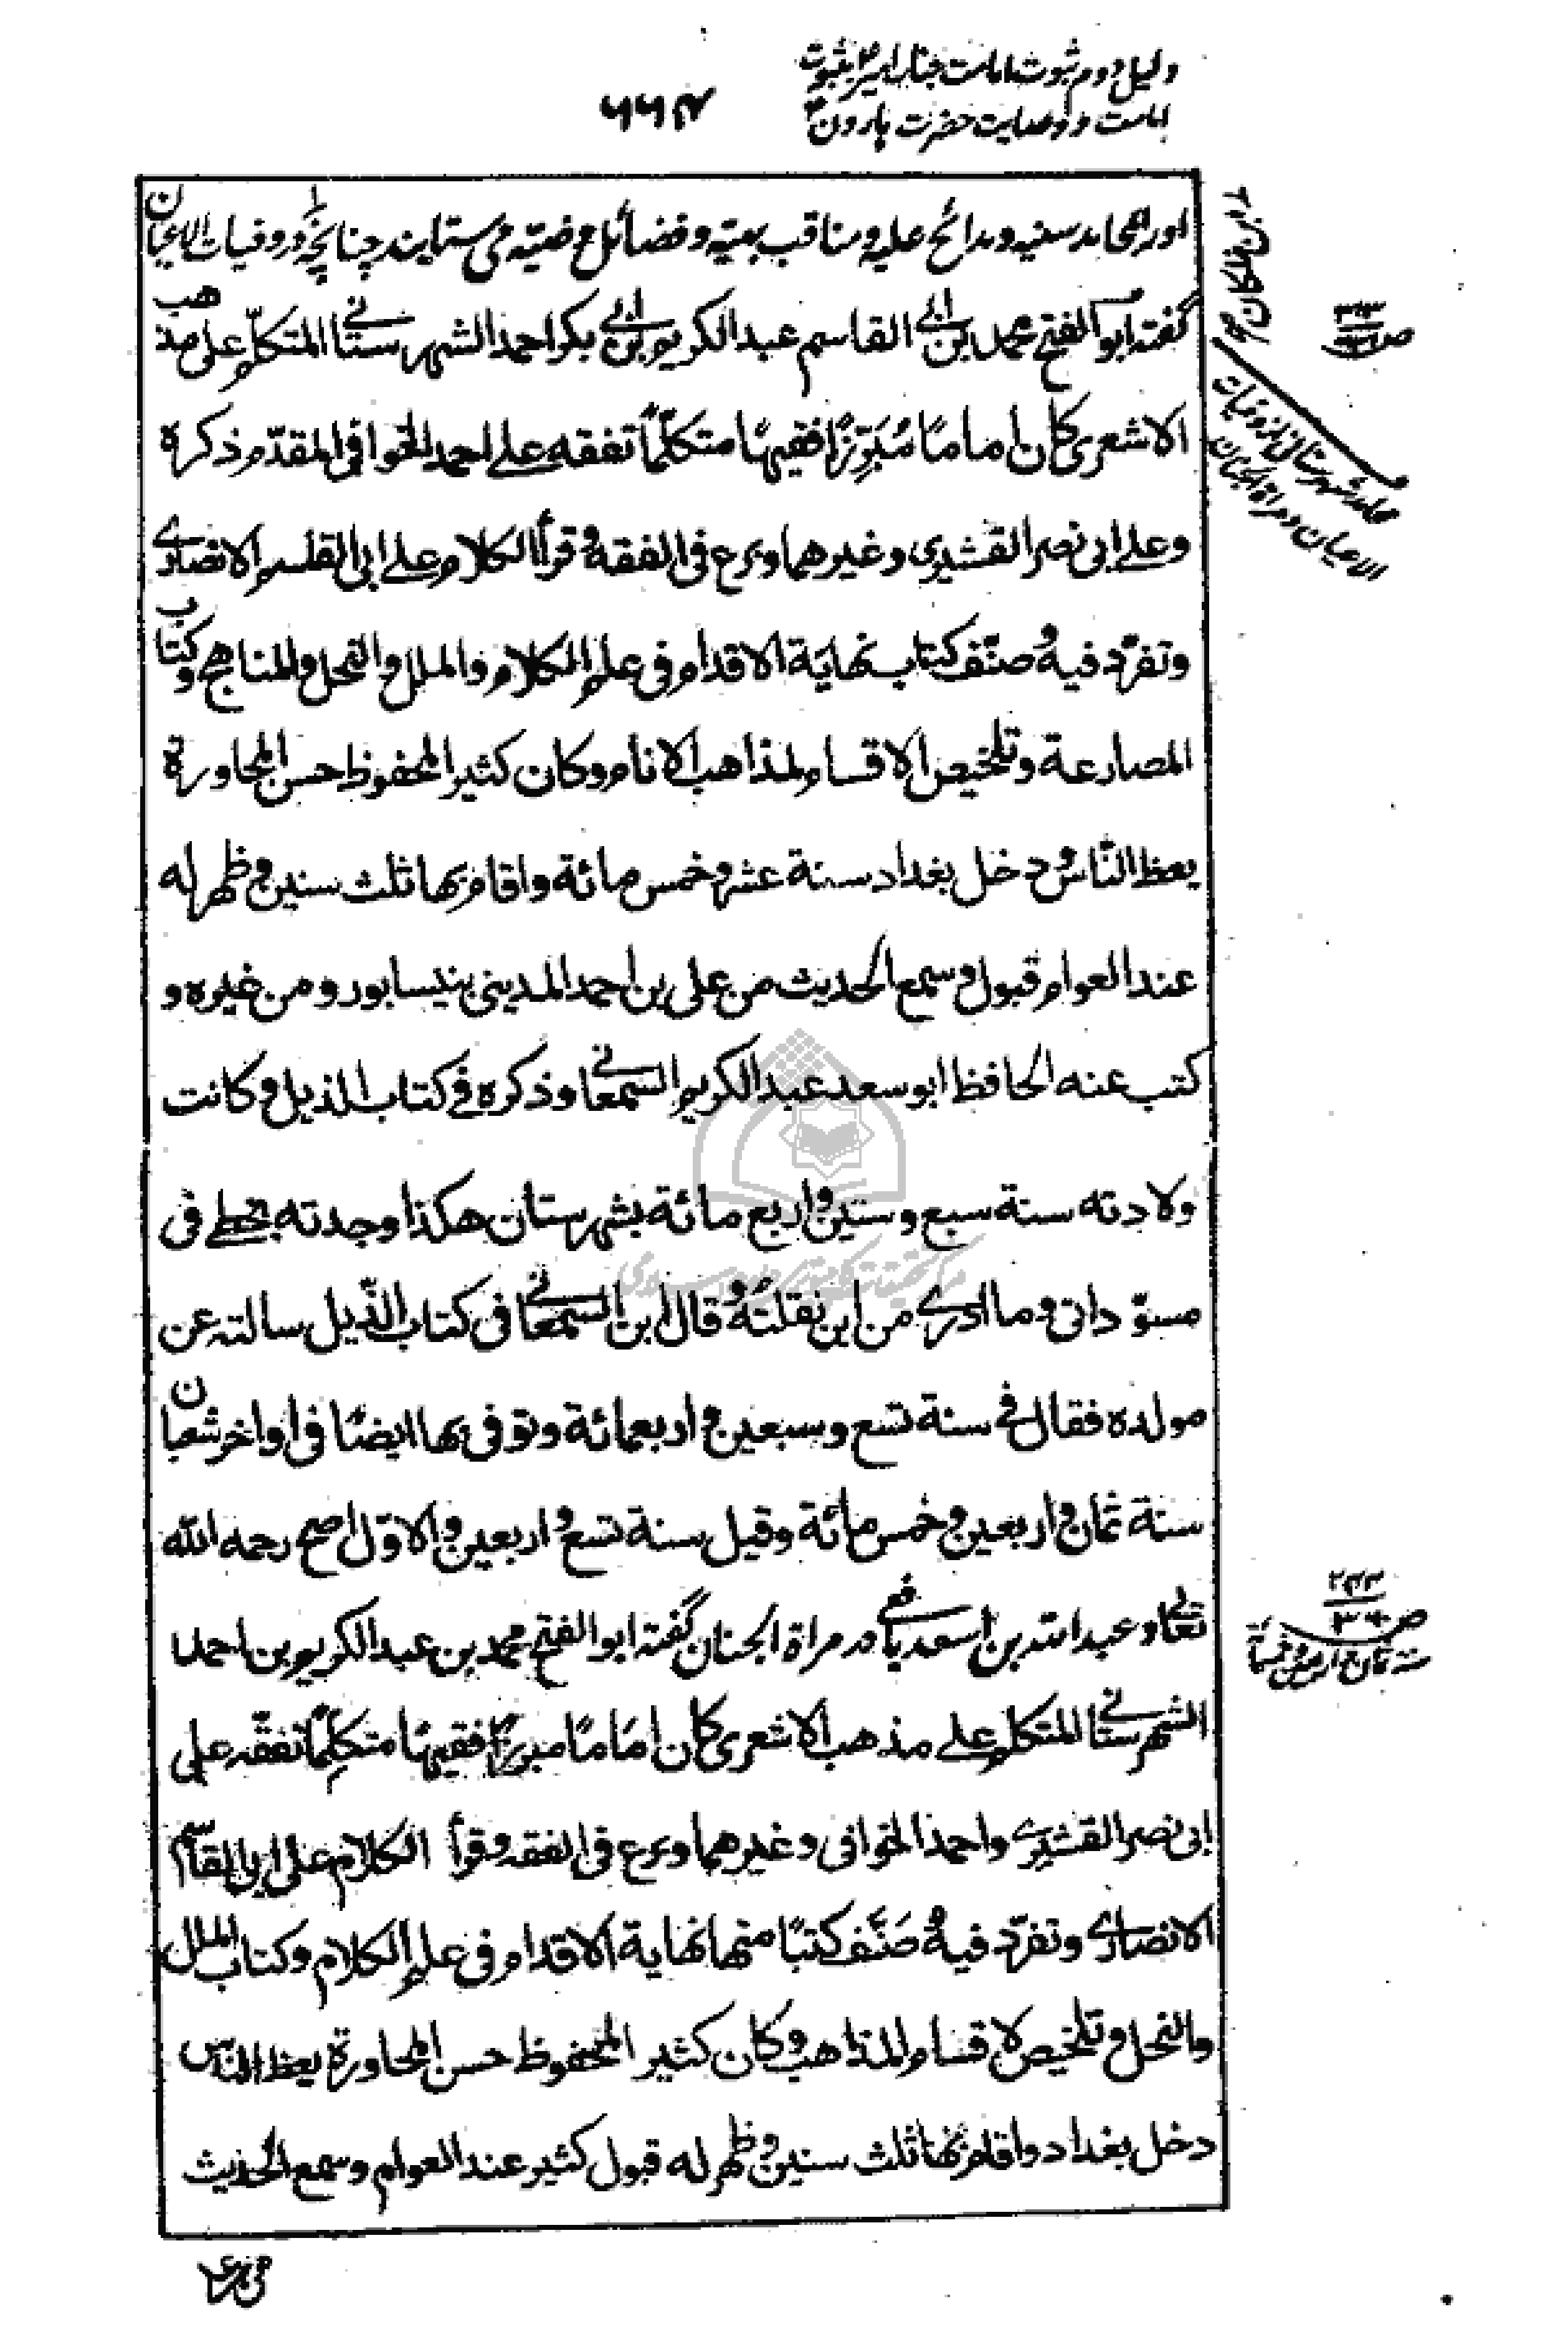 دلیل دوم ثبوت امامت جناب امیر بثبوت
امامت و وصایت حضرت هارون
۶۶۴
او را بمحامد سنیه و مدائح علیه و مناقب بهیه و فضائل رضیه می ستایند چنانچه در وفیات الاعیان
گفته ابو الفتح محمد بن ابی القاسم عبد الکریم بن ابی بکر احمد الشهرستانی المتکلّم علی مذهب
الاشعری کان اماما مُبَرِّزًا فقیهًا متکلّمًا تفقه علی احمد الخوافی المقدّم ذکره
وعلی ابی نصر القشیری وغیرهما وبرع فی الفقه وقرأ الکلام علی ابی القاسم الانصاری
وتفرّد فیه وصنّف کتاب نهایة الاقدام فی علم الکلام والملل والنحل والمناهج وکتاب
المصارعة وتلخیص الاقسام لمذاهب الانام وکان کثیر المحفوظ حسن المحاورة
یعظ النّاس ودخل بغداد سنة عشر وخمس مائة واقام بها ثلث سنین وظهر له
عند العوام قبول وسمع الحدیث من علی بن احمد المدینی بنیسابور ومن غیره و
کتب عنه الحافظ ابو سعد عبد الکریم السمعانی وذکره فی کتاب الذیل وکانت
ولادته سنة سبع وستین واربع مائة بشهرستان هکذا وجدته بخطی فی
مسوّداتی وما ادری من این نقلتُه وقال ابن السمعانی فی کتاب الذّیل سالته عن
مولده فقال فی سنة تسع وسبعین واربعمائة وتوفی بها ایضًا فی اواخر شعبان
سنة ثمان واربعین وخمس مائة وقیل سنة تسع واربعین والاوّل اصح رحمه الله
تعالی و عبد الله بن اسعد یافعی در مراة الجنان گفته ابو الفتح محمد بن عبد الکریم بن احمد
الشهرستانی المتکلم علی مذهب الاشعری کان اِمَامًا مبرزًا فقیهًا متکلِّمًا تفقّه علی
ابی نصر القشیری واحمد الخوافی وغیرهما وبرع فی الفقه وقرأ الکلام علی ابی القاسم
الانصاری وتفرّد فیه وصَنَّف کتبًا منها نهایة الاقدام فی علم الکلام وکتاب الملل
والنحل وتلخیص الاقسام لمذاهب وکان کثیر المحفوظ حسن المحاورة یعظ الناس
دخل بغداد واقام بها ثلث سنین وظهر له قبول کثیر عند العوام وسمع الحدیث
محامد شهرستانی از وفیات
الاعیان و مراة الجنان
سنه ثمان و اربعین و خمسمائة